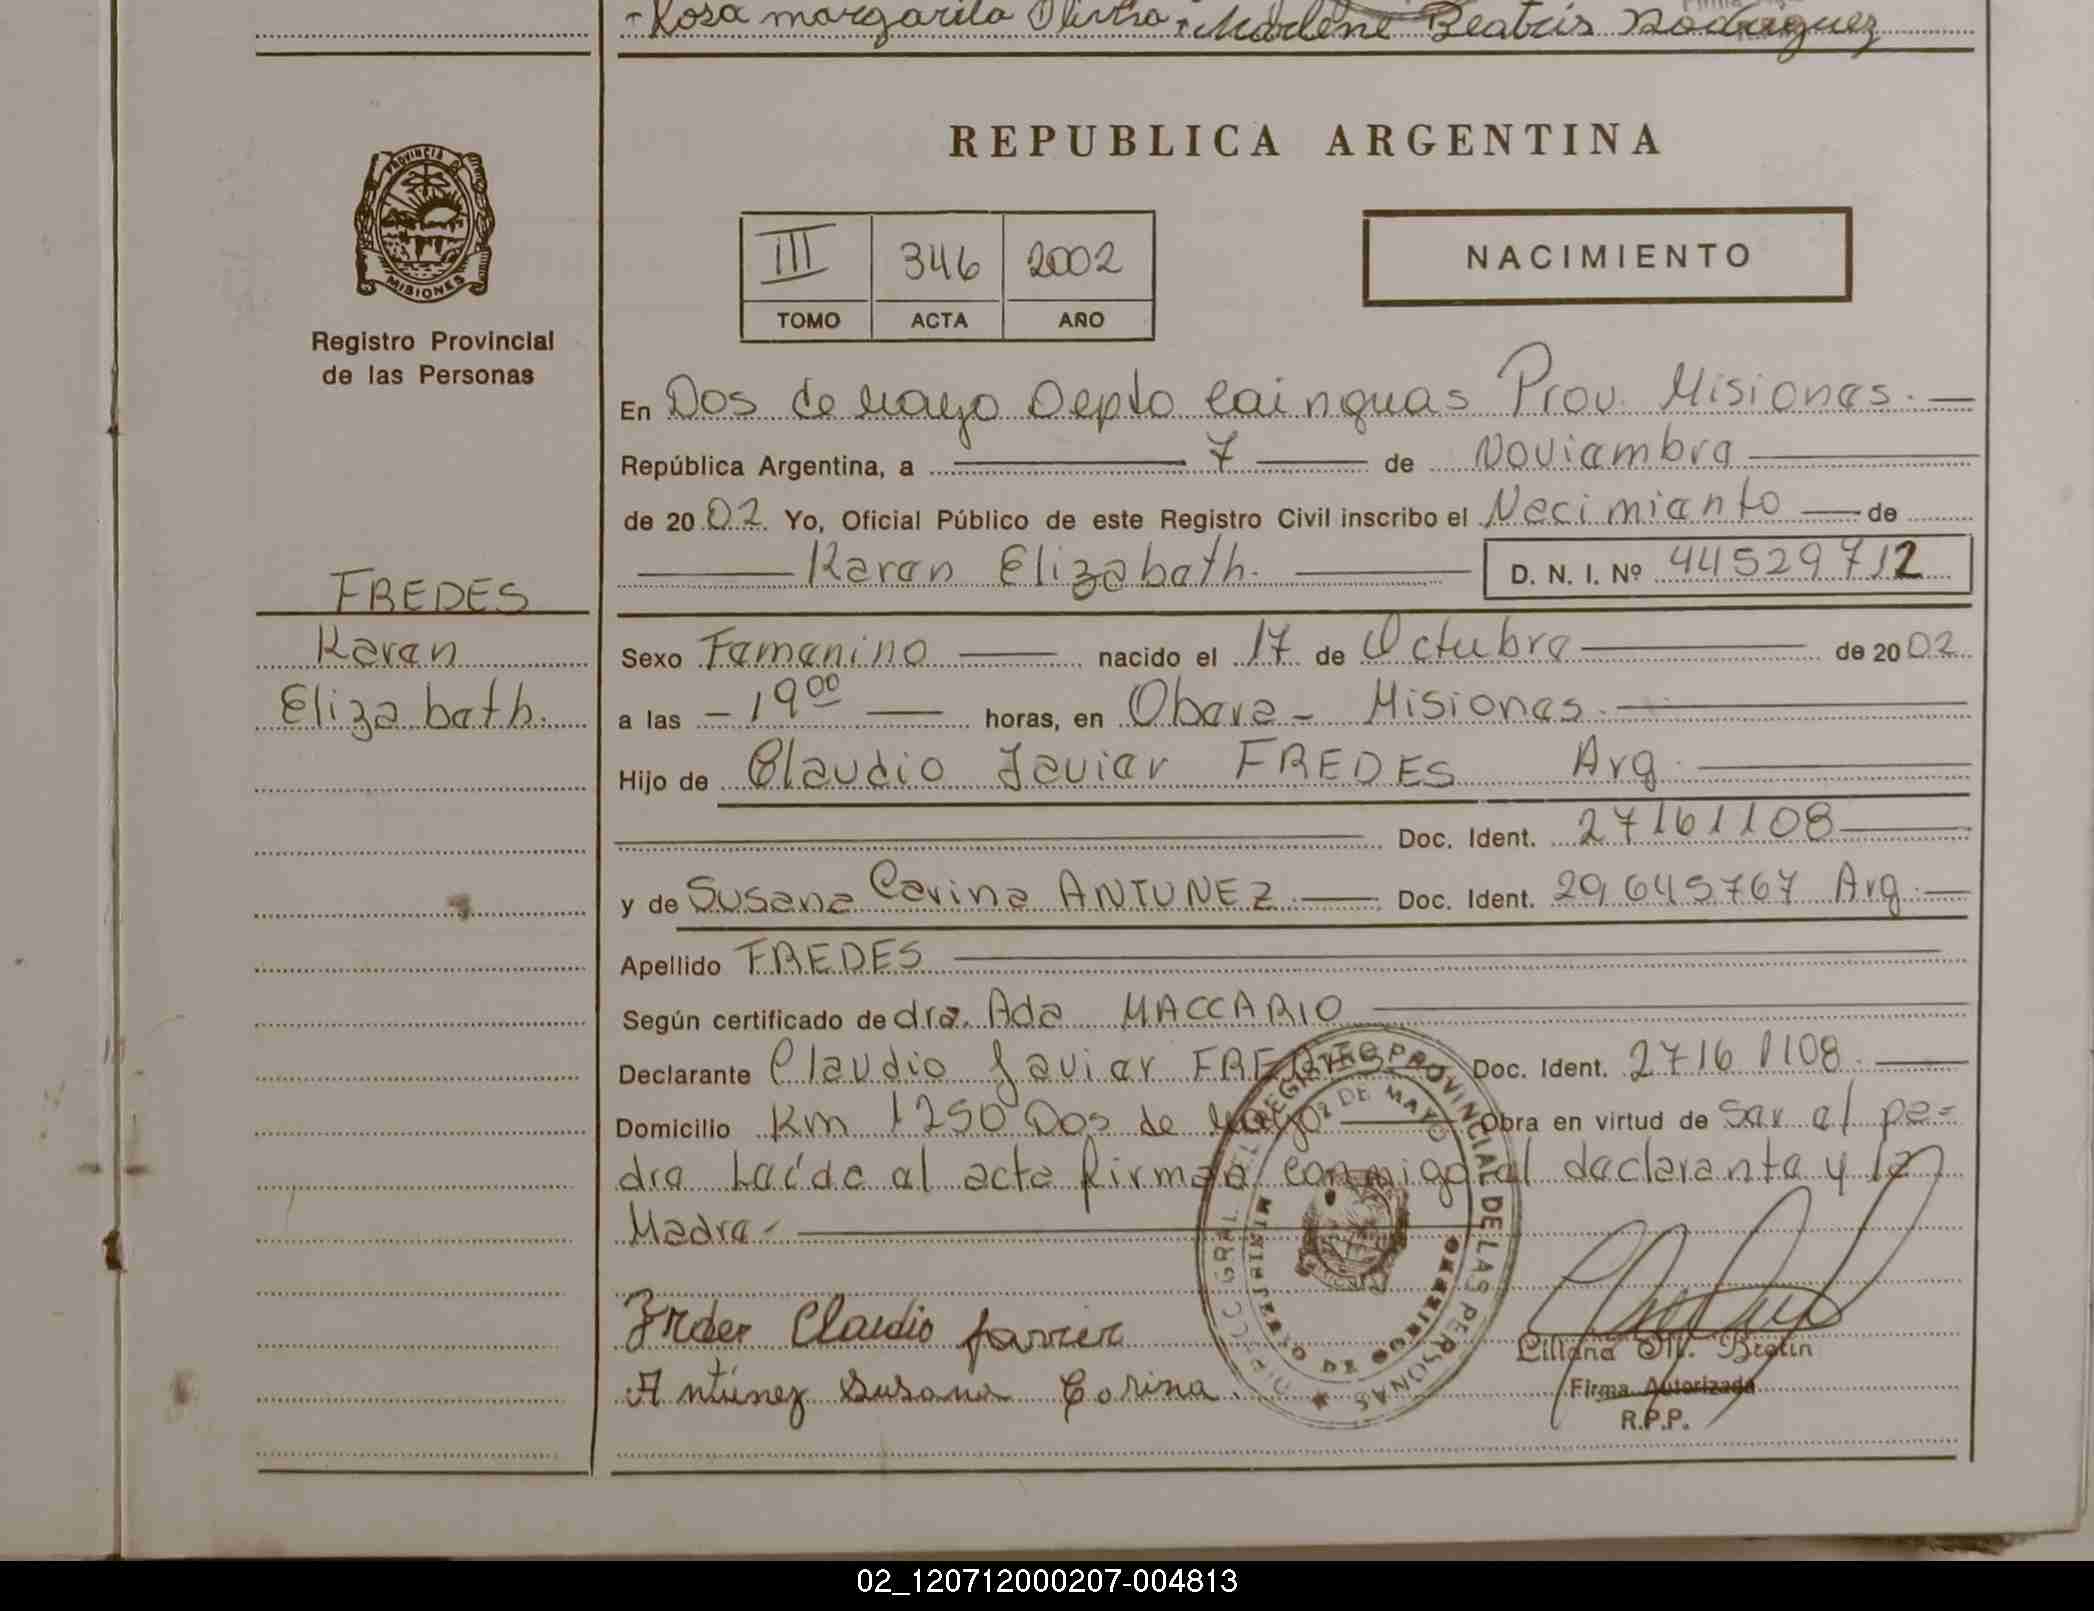 - Rosa margarita Olivera. Marlene Beatris Rodriguez
REPUBLICA ARGENTINA
III 346 2002
TOMO ACTA AÑO
NACIMIENTO
PROVINCIA DE
MISIONES
Registro Provincial
de las Personas
En Dos de Mayo Depto Cainguas Prov. Misiones.
República Argentina, a 7 de Noviembre
de 2002 Yo, Oficial Público de este Registro Civil inscribo el Necimiento de
Karen Elizabeth. D. N. I. Nº 44529712
FREDES
Karen
Elizabeth.
Sexo Femenino nacido el 17 de Octubre de 2002
a las - 19⁰⁰ horas, en Obera - Misiones.
Hijo de Claudio Javier FREDES Arg.
Doc. Ident. 27161108
y de Susana Carina ANTUNEZ Doc. Ident. 29,645767 Arg.
Apellido FREDES
Según certificado de dra. Ada MACCARIO
Declarante Claudio Javier FREDES Doc. Ident. 27161108.
Domicilio Km 1250 Dos de Mayo Obra en virtud de ser el pa-
dre Leída el acta firman conmigo el declarante y la
Madre -
Fredes Claudio Javier
Antúnez Susana Corina.
REGISTRO PROVINCIAL DE LAS PERSONAS
2 DE MAYO
MINISTERIO DE GOBIERNO
Liliana M. Brolin
Firma Autorizada
R.P.P.
02_120712000207-004813